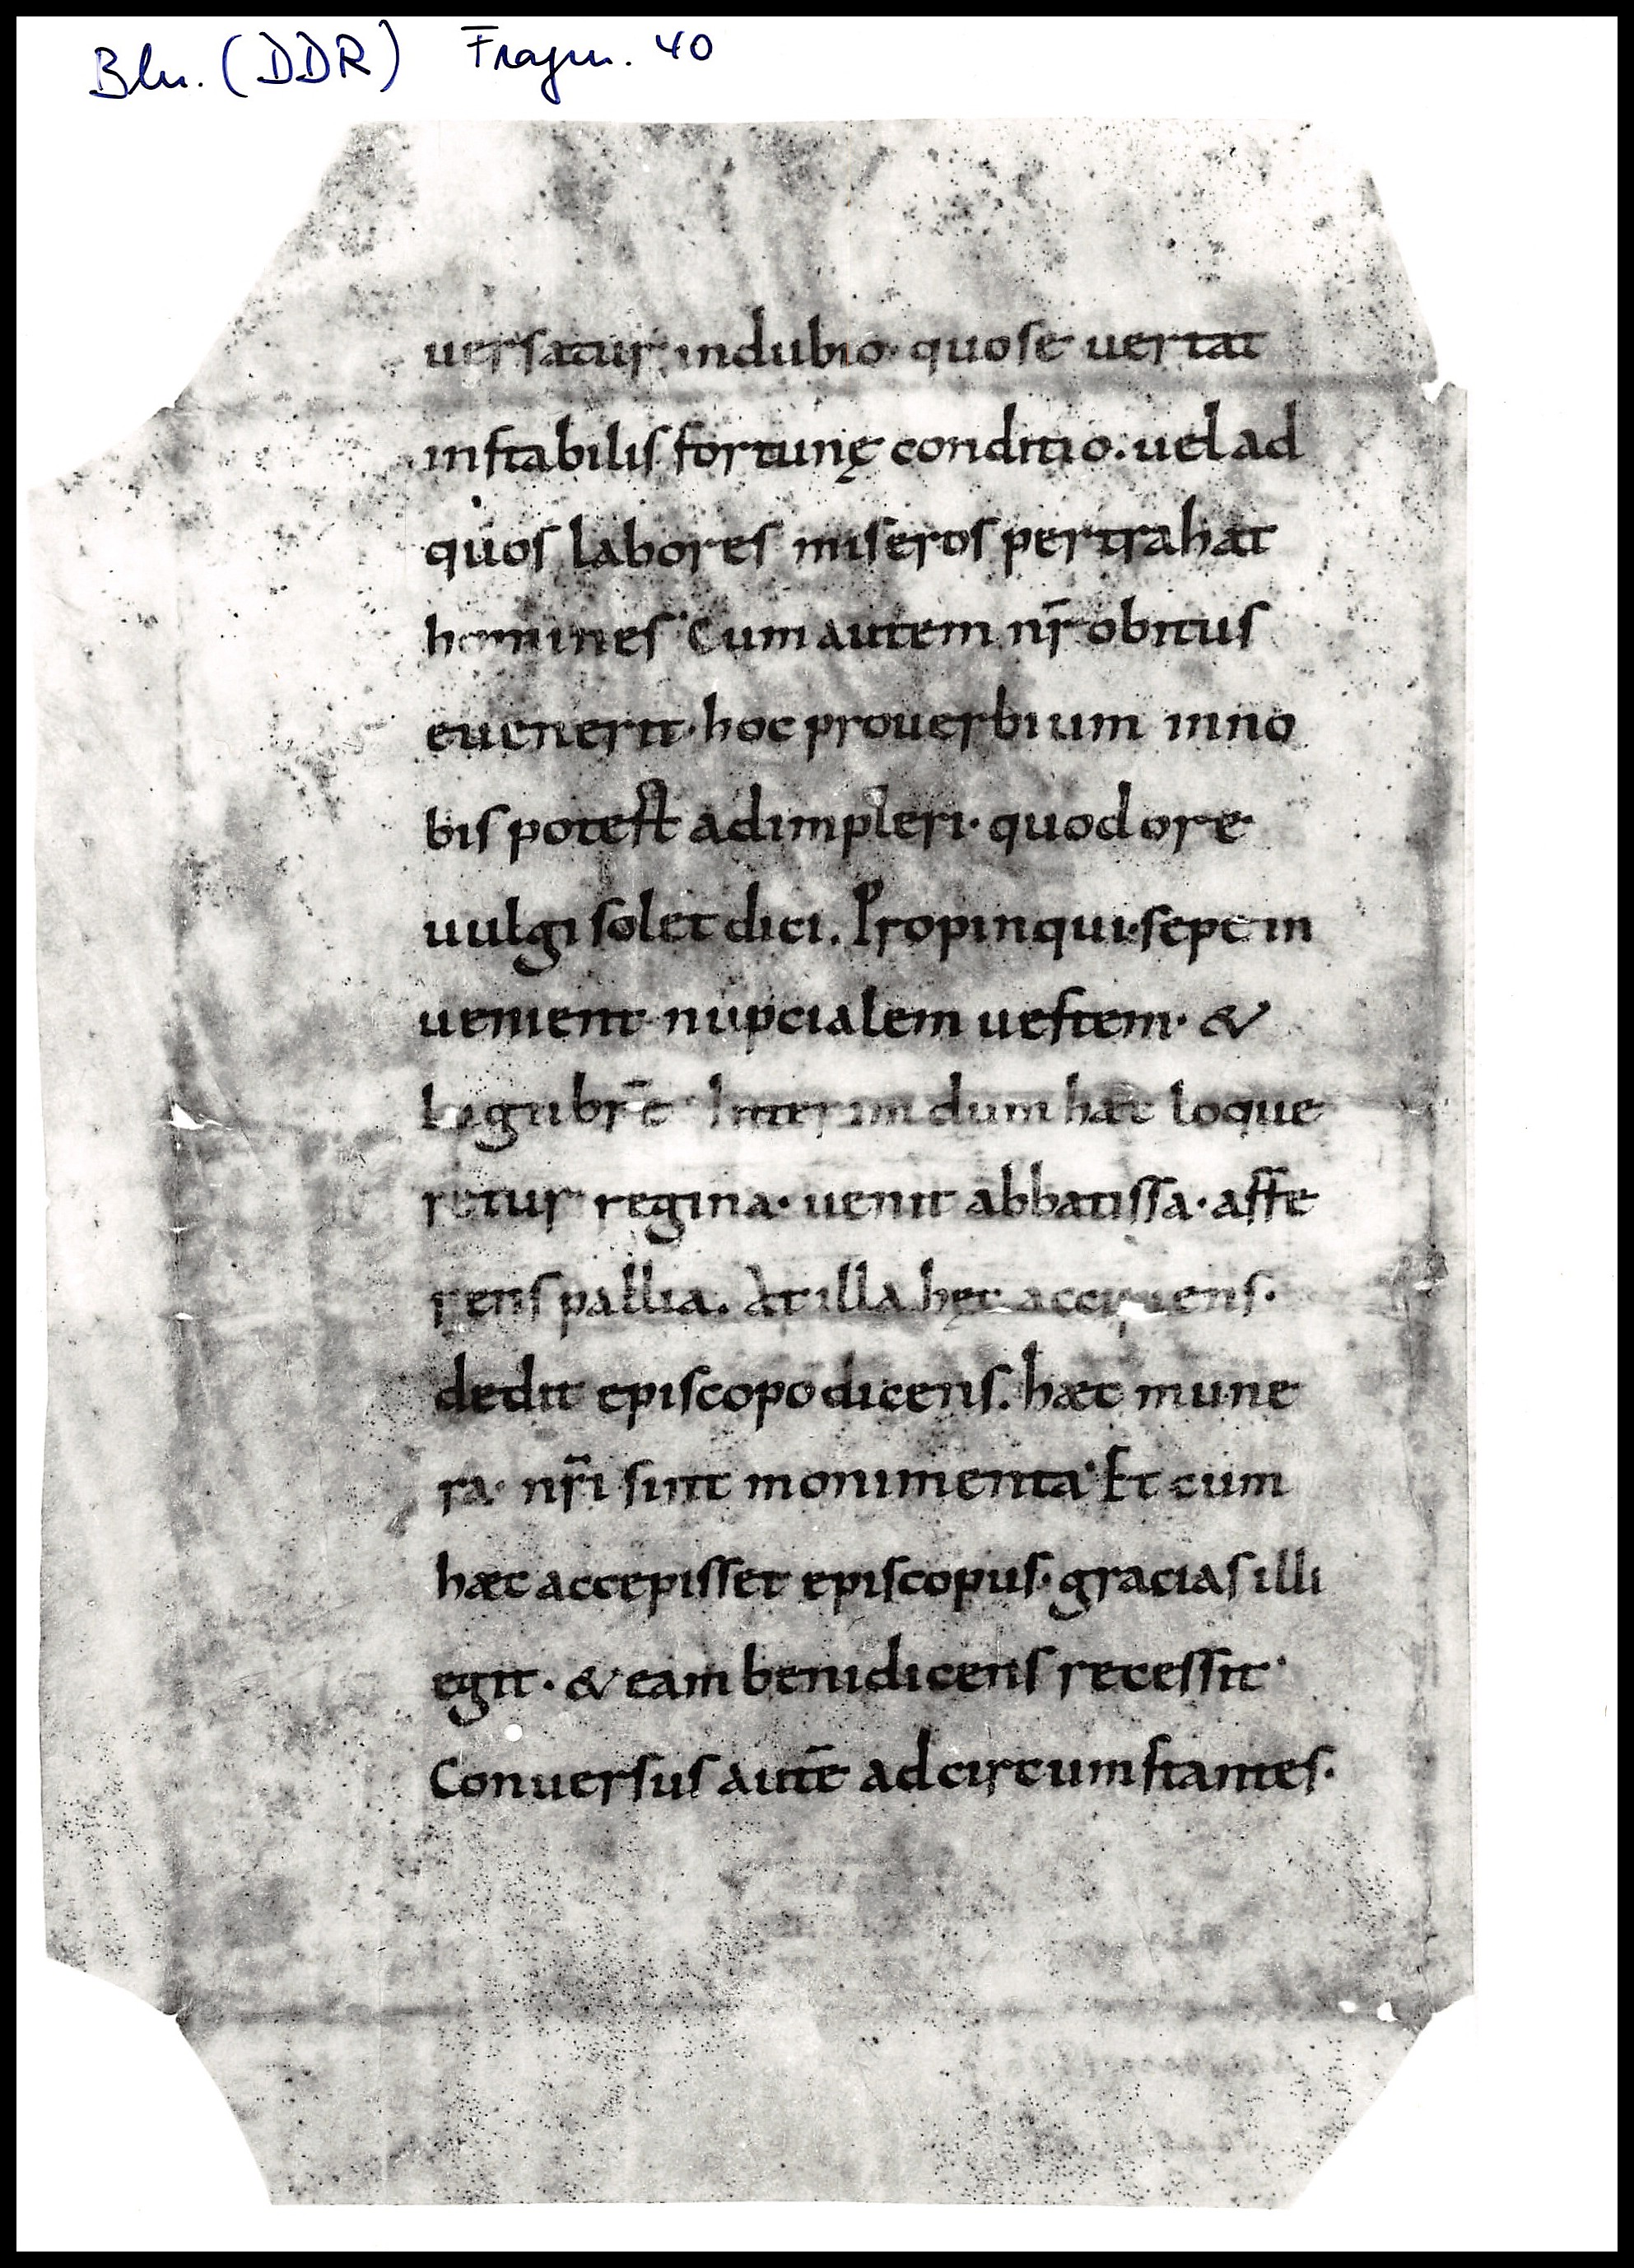 Bln. (DDR) Fragm. 40
uersatur· indubio· quose uertat
instabilis fortunę conditio. uel ad
quos labores miseros pertrahat
homines· Cum autem nr̄ obitus
euenerit· hoc prouerbium inno
bis potest adimpleri· quod ore
uulgi solet dici. Propinqui· sepe in
uenient nupcialem uestem· &
lugubrē· Interim dum hæc loque
retur regina· uenit abbatissa· affe
rens pallia. At illa hęc accipiens·
dedit episcopo dicens. hæc mune
ra· nr̄i sunt monimenta· Et cum
hæc accepisset episcopus· gracias illi
egit· & eam benidicens recessit·
Conuersus autē ad circumstantes·